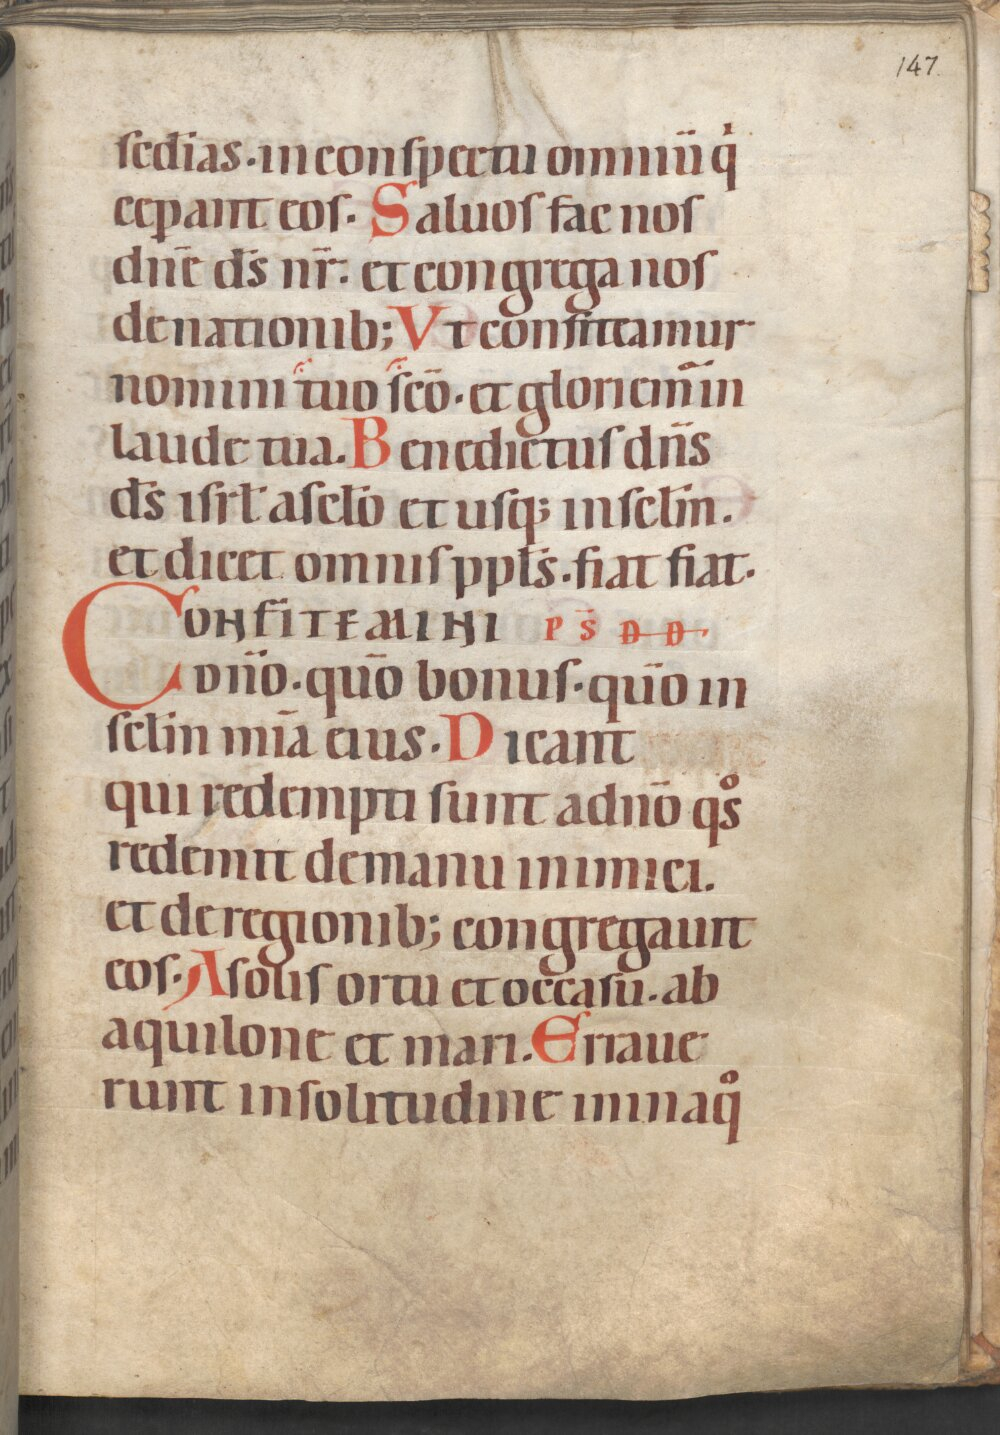 147.
sedias. in conspectu omniū q̇
cep̄ant eos. Saluos fac nos
dn̄e ds̄ nr̄. et congrega nos
de nationib; Vt confiteamur
nomini tuo sc̄o. et gloriem̄ in
laude tua. Benedictus dn̄s
ds̄ isrl̄ a scl̄o et usq; in scl̄m.
et dicet omnis ppl̄s. fiat fiat.
CONFITEMINI PS̄ DD
dn̄o. quō bonus. quō in
scl̄m mīa eius. Dicant
qui redempti sunt a dn̄o qͦs
redemit de manu inimici.
et de regionib; congregauit
eos. A solis ortu et occasu. ab
aquilone et mari. Erraue
runt in solitudine in inaqͦ